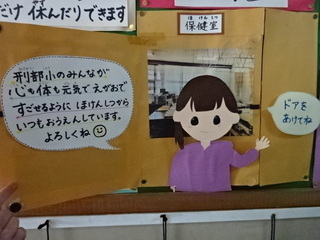 だけ 休んだりできます
ほけんしつ
保健室
刑部小のみんなが
心も体も元気で えがおで
すごせるように ほけんしつから
いつもおうえんしています。
よろしくね
ドアを
あけてね